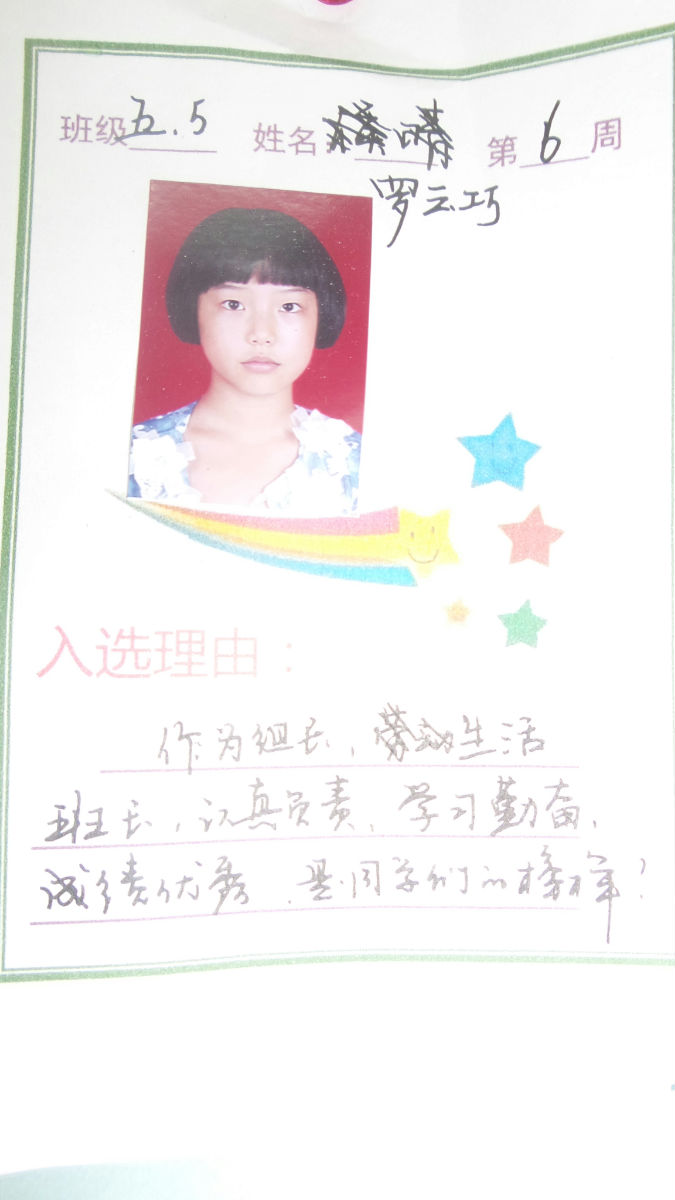 班级五.5 姓名: 第6周
罗云巧
入选理由:
作为组长,劳动生活
班长,认真负责、学习勤奋、
成绩优秀、是同学们的榜样!